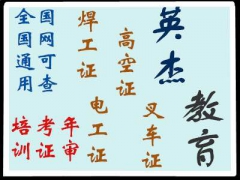 英杰
教育
全国通用
国网可查
焊工证
高空证
电工证
叉车证
培训
考证
年审